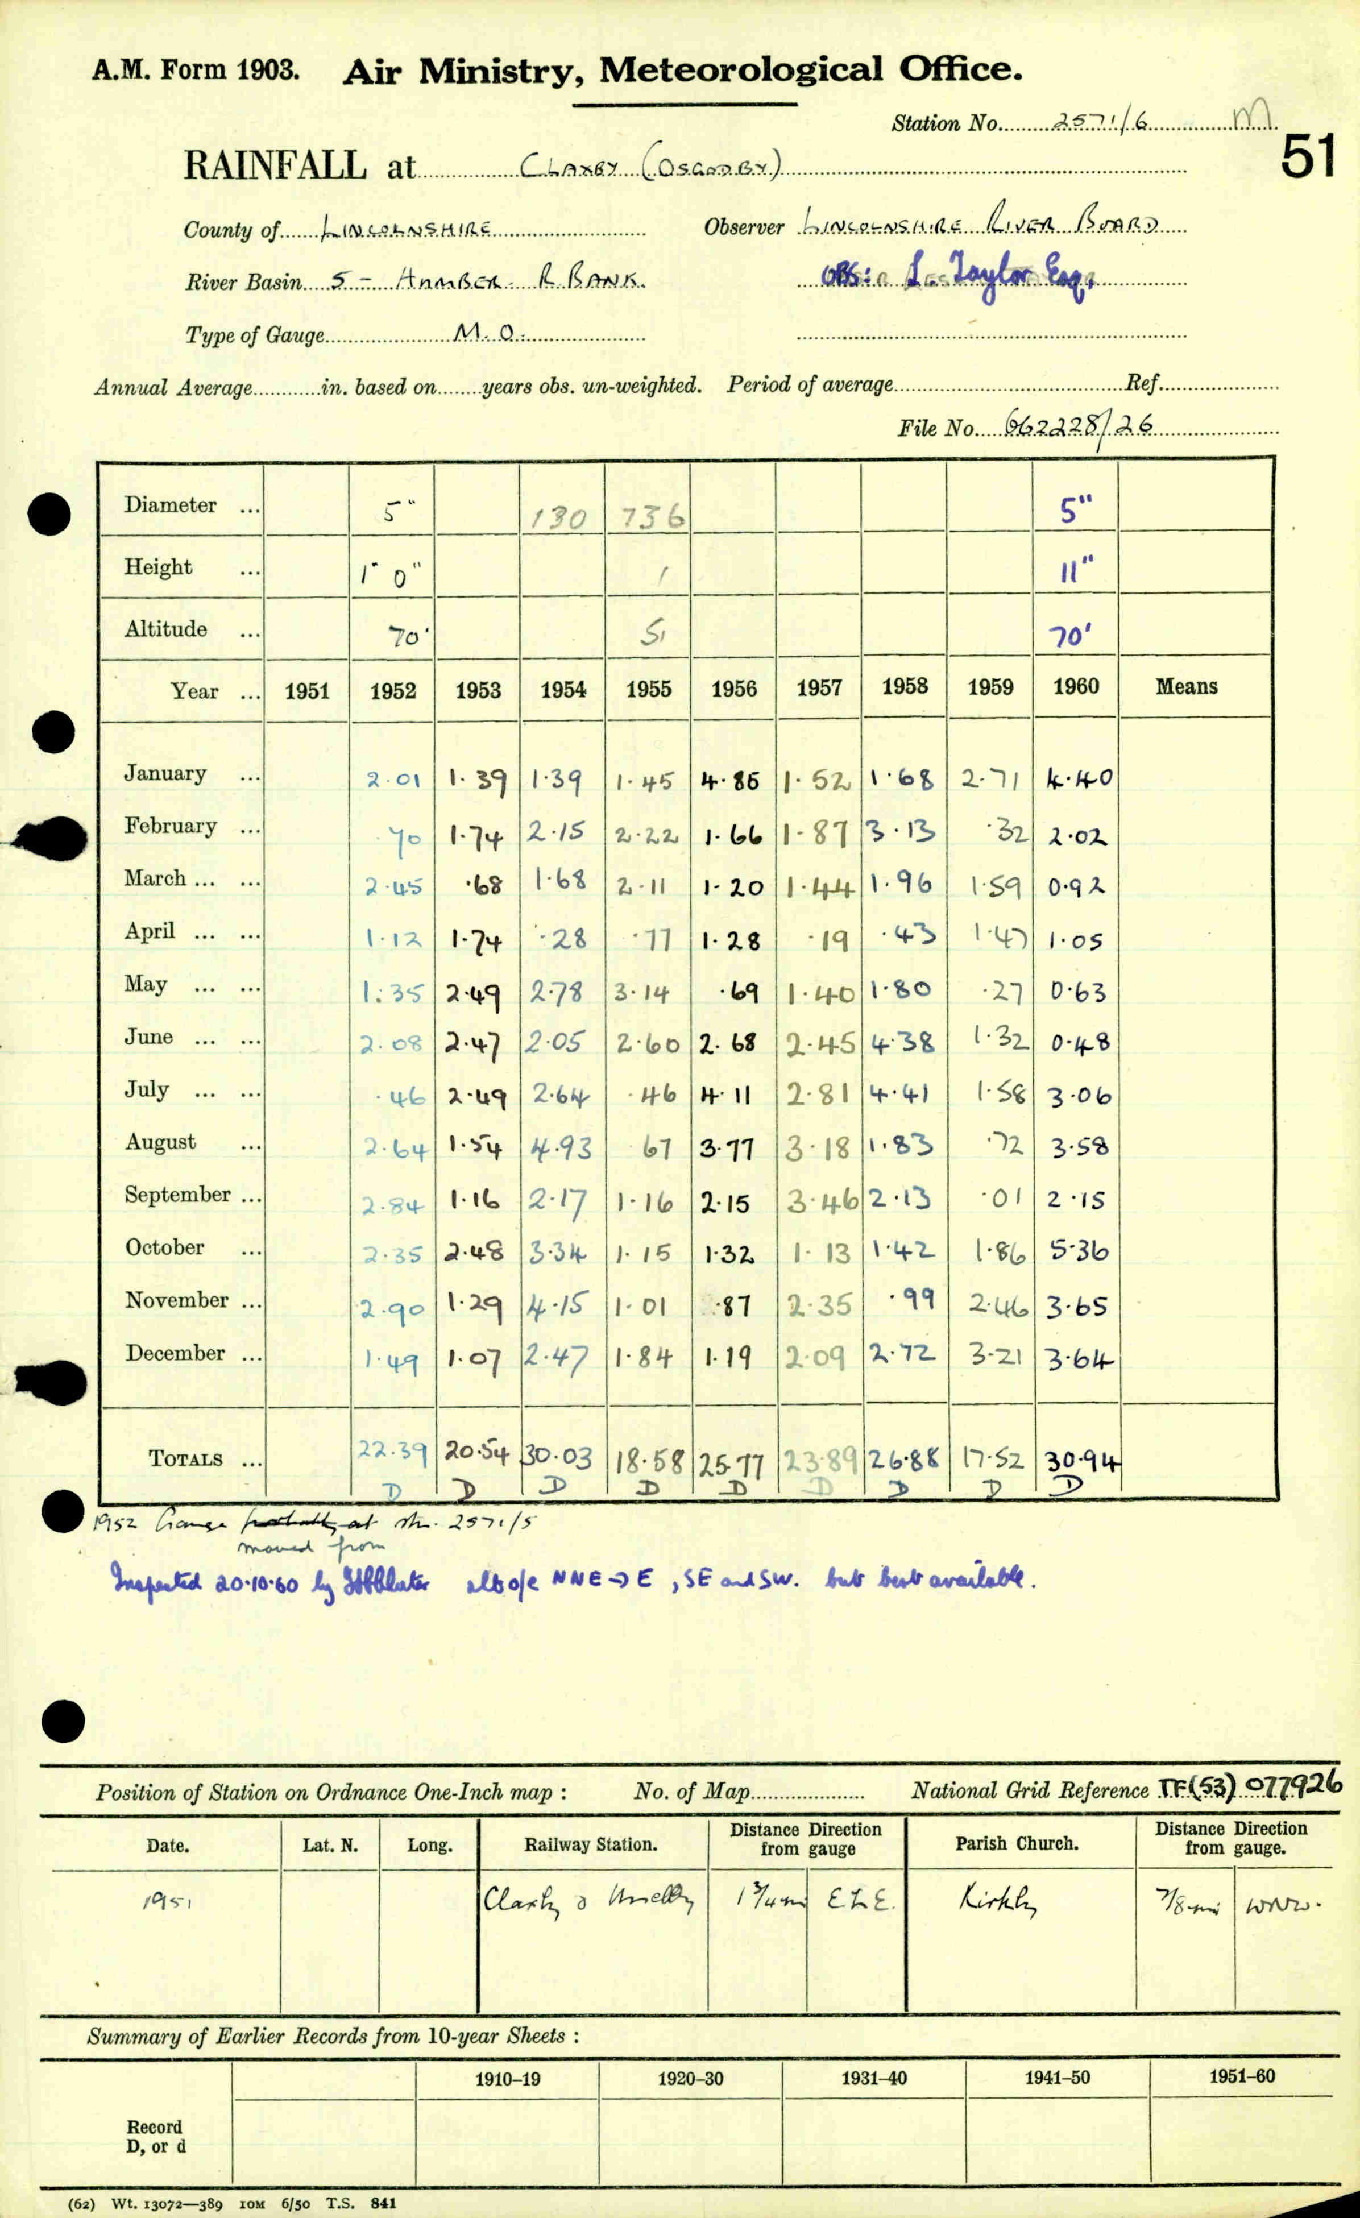 A.M. Form 1903. Air Ministry, Meteorological Office.
Station No. 2571/6 M
51
RAINFALL at CLAXBY (OSGODBY)
County of LINCOLNSHIRE Observer LINCOLNSHIRE RIVER BOARD
River Basin 5 - HUMBER R BANK. OBS: L. Taylor Esq,
Type of Gauge M.O.
Annual Average in. based on years obs. un-weighted. Period of average Ref.
File No. 662228/26
Diameter ... 5" 130 736 5"
Height ... 1' 0" 1 11"
Altitude ... 70' 5 70'
Year ... 1951 1952 1953 1954 1955 1956 1957 1958 1959 1960 Means
January ... 2.01 1.39 1.39 1.45 4.86 1.52 1.68 2.71 4.40
February ... .70 1.74 2.15 2.22 1.66 1.87 3.13 .32 2.02
March ... ... 2.45 .68 1.68 2.11 1.20 1.44 1.96 1.59 0.92
April ... ... 1.12 1.74 .28 .77 1.28 .19 .43 1.47 1.05
May ... ... 1.35 2.49 2.78 3.14 .69 1.40 1.80 .27 0.63
June ... ... 2.08 2.47 2.05 2.60 2.68 2.45 4.38 1.32 0.48
July ... ... .46 2.49 2.64 .46 4.11 2.81 4.41 1.58 3.06
August ... 2.64 1.54 4.93 67 3.77 3.18 1.83 .72 3.58
September ... 2.84 1.16 2.17 1.16 2.15 3.46 2.13 .01 2.15
October ... 2.35 2.48 3.34 1.15 1.32 1.13 1.42 1.86 5.36
November ... 2.90 1.29 4.15 1.01 .87 2.35 .99 2.46 3.65
December ... 1.49 1.07 2.47 1.84 1.19 2.09 2.72 3.21 3.64
TOTALS ... 22.39 20.54 30.03 18.58 25.77 23.89 26.88 17.52 30.94
D D D D D D D D D
1952 Gauge at stn. 2571/5
moved from
Inspected 20.10.60 by also o/e NNE→E, SE and SW. but best available.
Position of Station on Ordnance One-Inch map : No. of Map National Grid Reference TF(53) 077926
Date. Lat. N. Long. Railway Station. Distance Direction from gauge Parish Church. Distance Direction from gauge.
1951 Claxby & Usselby 1 3/4 mi E L E. Kirkby 7/8 mi WNW.
Summary of Earlier Records from 10-year Sheets :
1910–19 1920–30 1931–40 1941–50 1951–60
Record
D, or d
(62) Wt. 13072—389 10M 6/50 T.S. 841